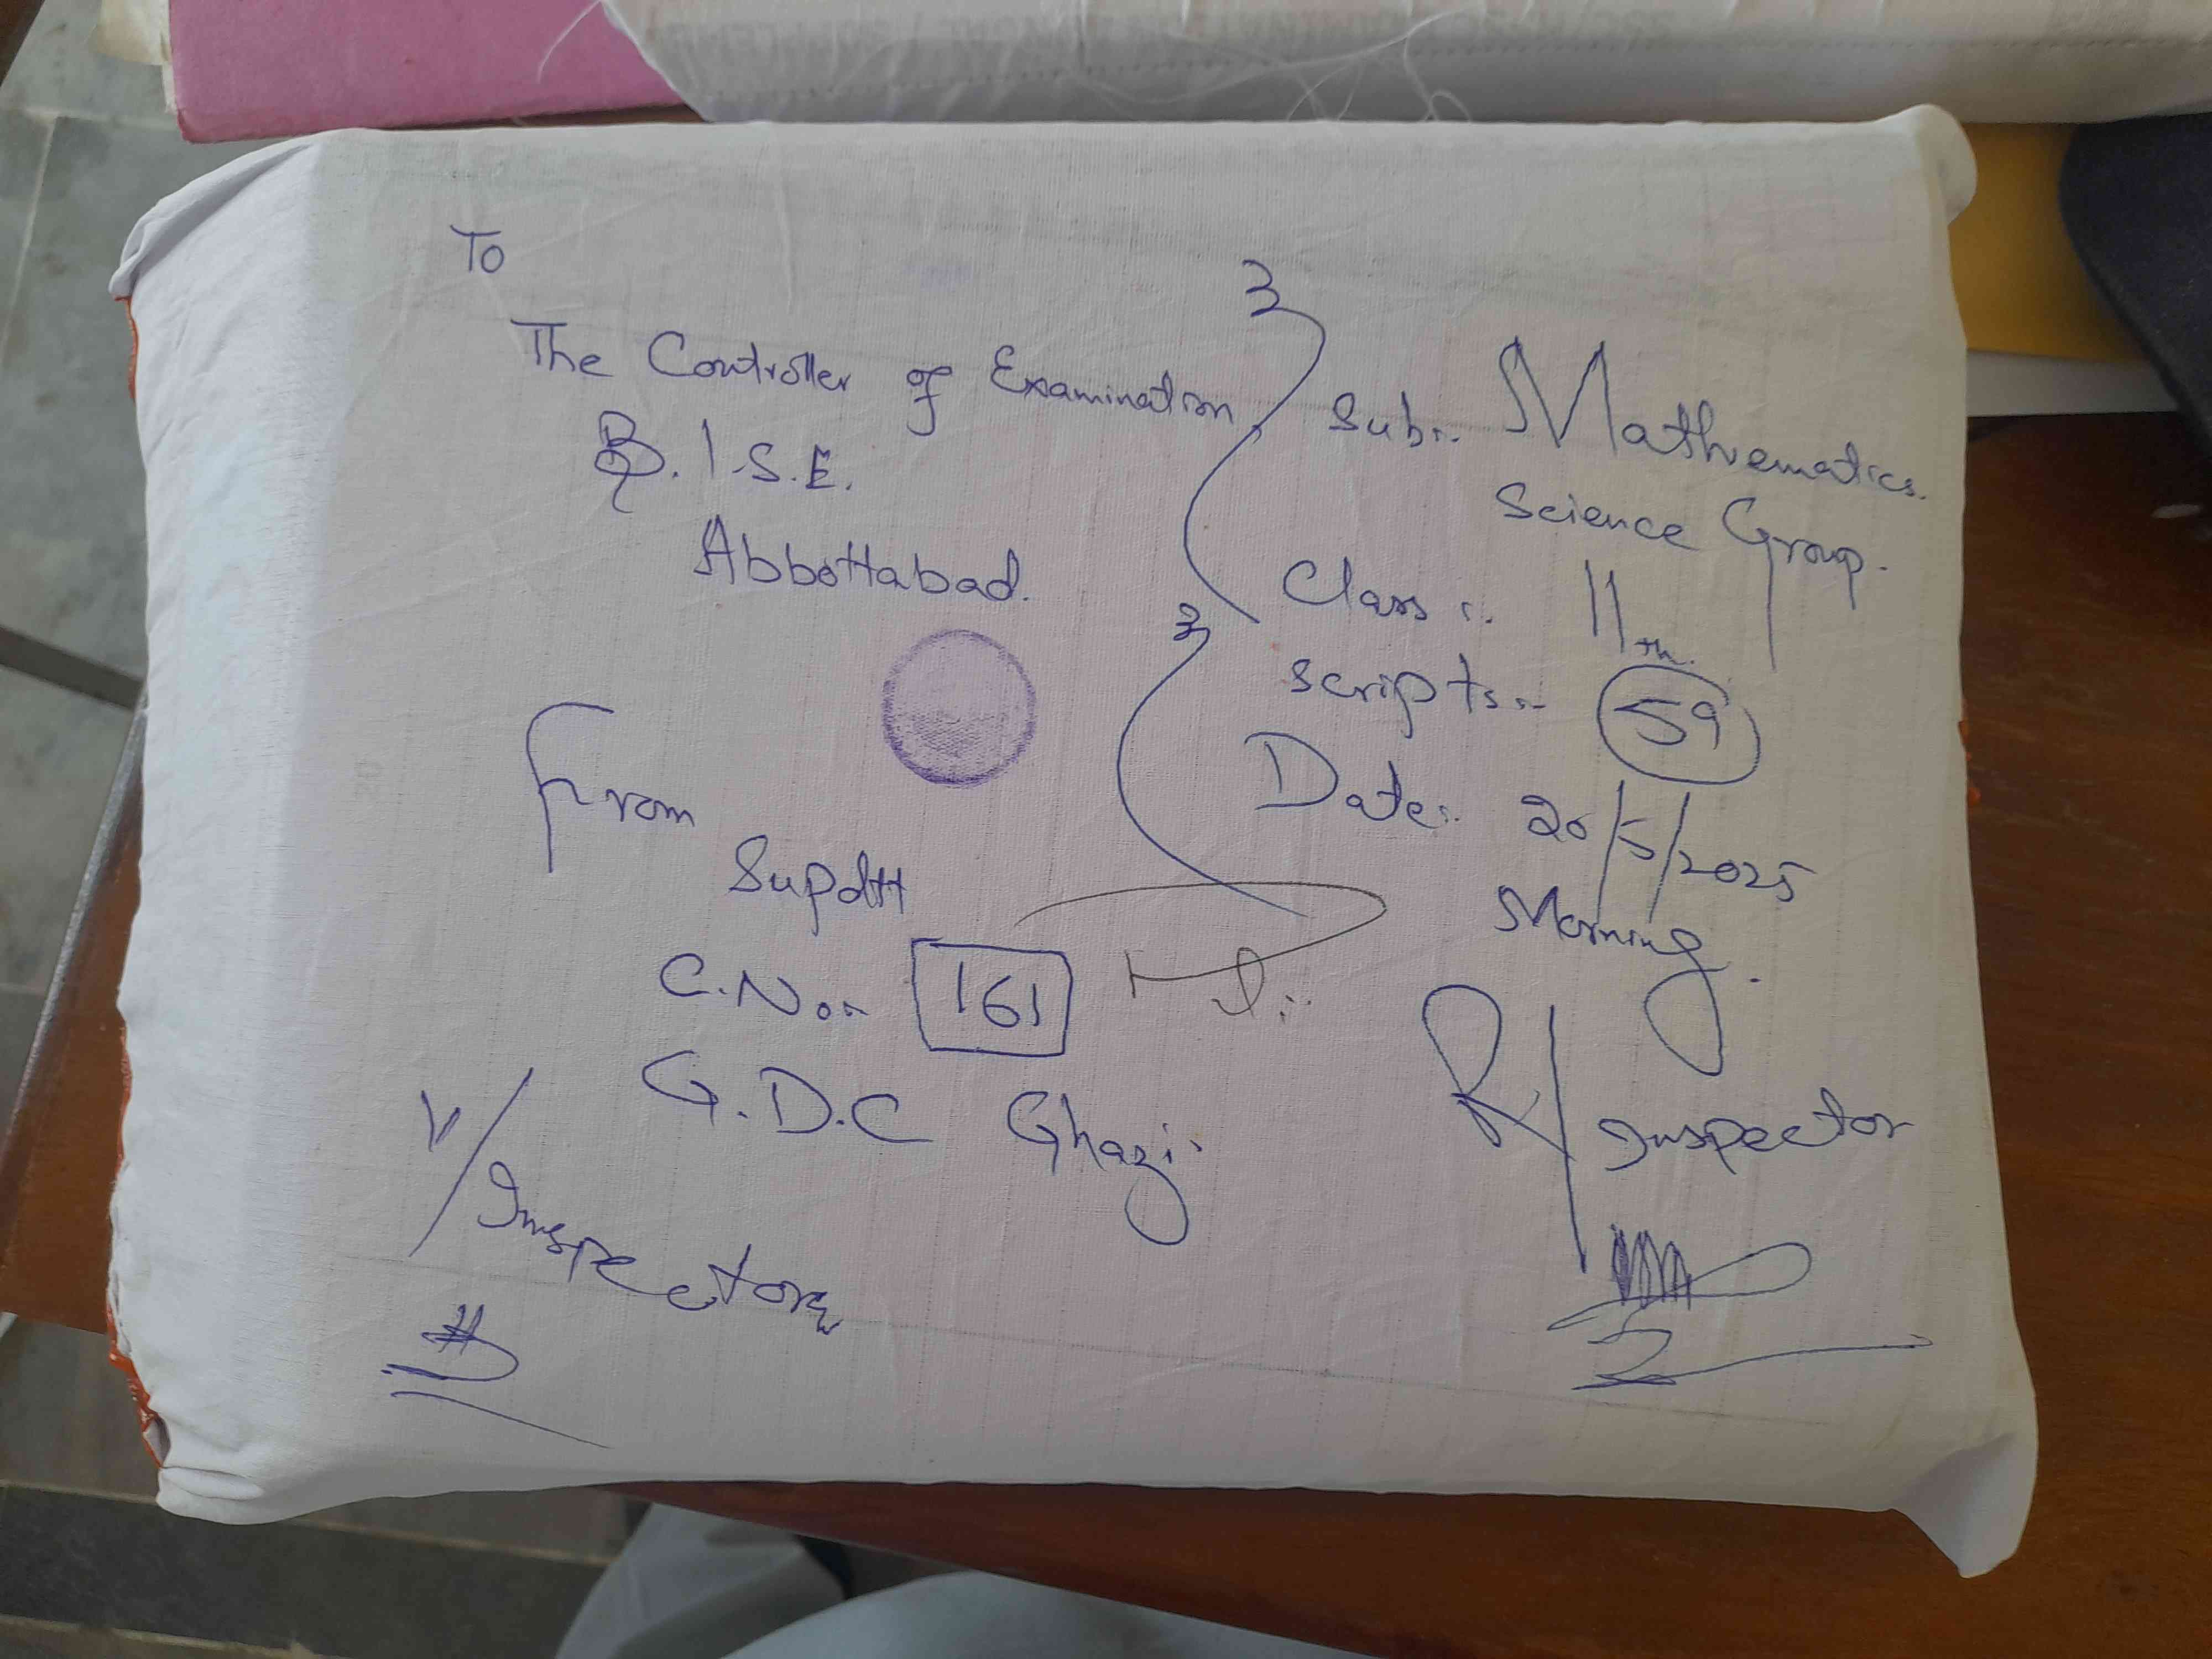 To
The Controller of Examination
B.I.S.E.
Abbottabad.
From
Supdtt
C.No:-
161
G.D.C Ghazi.
V/Inspector
Sub:- Mathematics.
Science Group.
Class :- 11th.
Scripts:- 59
Date:- 20/5/2025
Morning.
R/Inspector